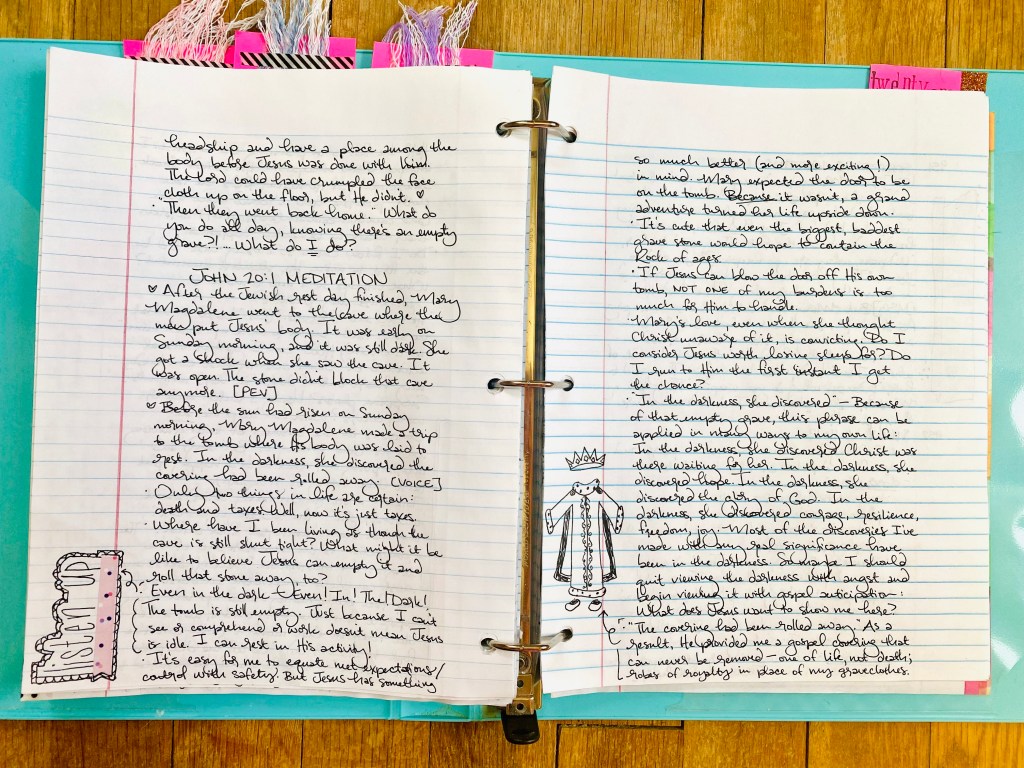 headship and have a place among the
body before Jesus was done with Him.
The Lord could have crumpled the face
cloth up on the floor, but He didn't. ♥
· "Then they went back home." What do
you do all day, knowing there's an empty
grave?!... What do I do?
JOHN 20:1 MEDITATION
♥ After the Jewish rest day finished, Mary
Magdalene went to the cave where the
men put Jesus' body. It was early on
Sunday morning, and it was still dark. She
got a shock when she saw the cave. It
was open. The stone didn't block that cave
anymore. [PEV]
♥ Before the sun had risen on Sunday
morning, Mary Magdalene made a trip
to the tomb where His body was laid to
rest. In the darkness, she discovered the
covering had been rolled away. [VOICE]
· Only two things in life are certain:
death and taxes. Well, now it's just taxes.
· Where have I been living as though the
cave is still shut tight? What might it be
like to believe Jesus can empty it and
roll that stone away, too?
· Even in the dark - Even! In! The! Dark!
The tomb is still empty. Just because I can't
see or comprehend or work doesn't mean Jesus
is idle. I can rest in His activity!
· It's easy for me to equate met expectations/
control with safety. But Jesus has something
listen up
twenty
so much better (and more exciting!)
in mind. Mary expected the door to be
on the tomb. Because it wasn't, a grand
adventure turned her life upside down.
· It's cute that even the biggest, baddest
grave stone would hope to contain the
Rock of ages.
· If Jesus can blow the door off His own
tomb, NOT ONE of my burdens is too
much for Him to handle.
· Mary's love, even when she thought
Christ unaware of it, is convicting. Do I
consider Jesus worth losing sleep for? Do
I run to Him the first instant I get
the chance?
· "In the darkness, she discovered" - Because
of that empty grave, this phrase can be
applied in many ways to my own life:
In the darkness, she discovered Christ was
there waiting for her. In the darkness, she
discovered hope. In the darkness, she
discovered the glory of God. In the
darkness, she discovered courage, resilience,
freedom, joy. Most of the discoveries I've
made with any real significance have
been in the darkness. So maybe I should
quit viewing the darkness with angst and
begin viewing it with gospel anticipation:
What does Jesus want to show me here?
· "The covering had been rolled away." As a
result, He provided me a gospel covering that
can never be removed - one of life, not death;
robes of royalty in place of my graveclothes.